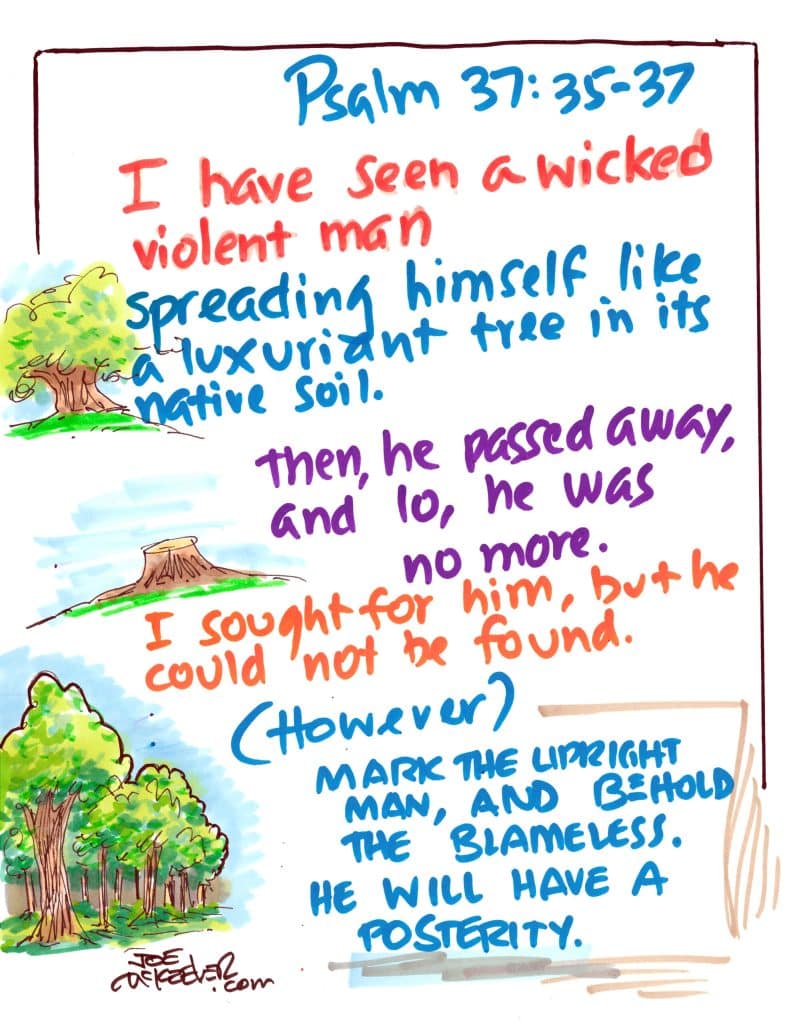 Psalm 37:35-37
I have seen a wicked
violent man
spreading himself like
a luxuriant tree in its
native soil.
Then, he passed away,
and lo, he was
no more.
I sought for him, but he
could not be found.
(However)
MARK THE UPRIGHT
MAN, AND BEHOLD
THE BLAMELESS.
HE WILL HAVE A
POSTERITY.
JOE
McKEEVER.com